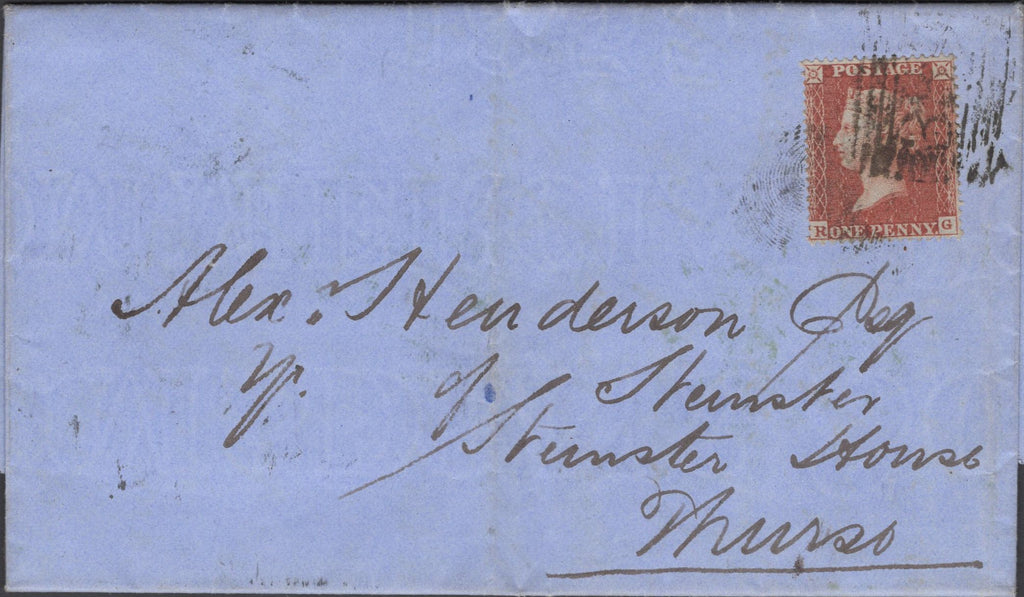 POSTAGE
R ONE PENNY G
Alex. Henderson Esq
Yr. of Stemster
Stemster House
Thurso